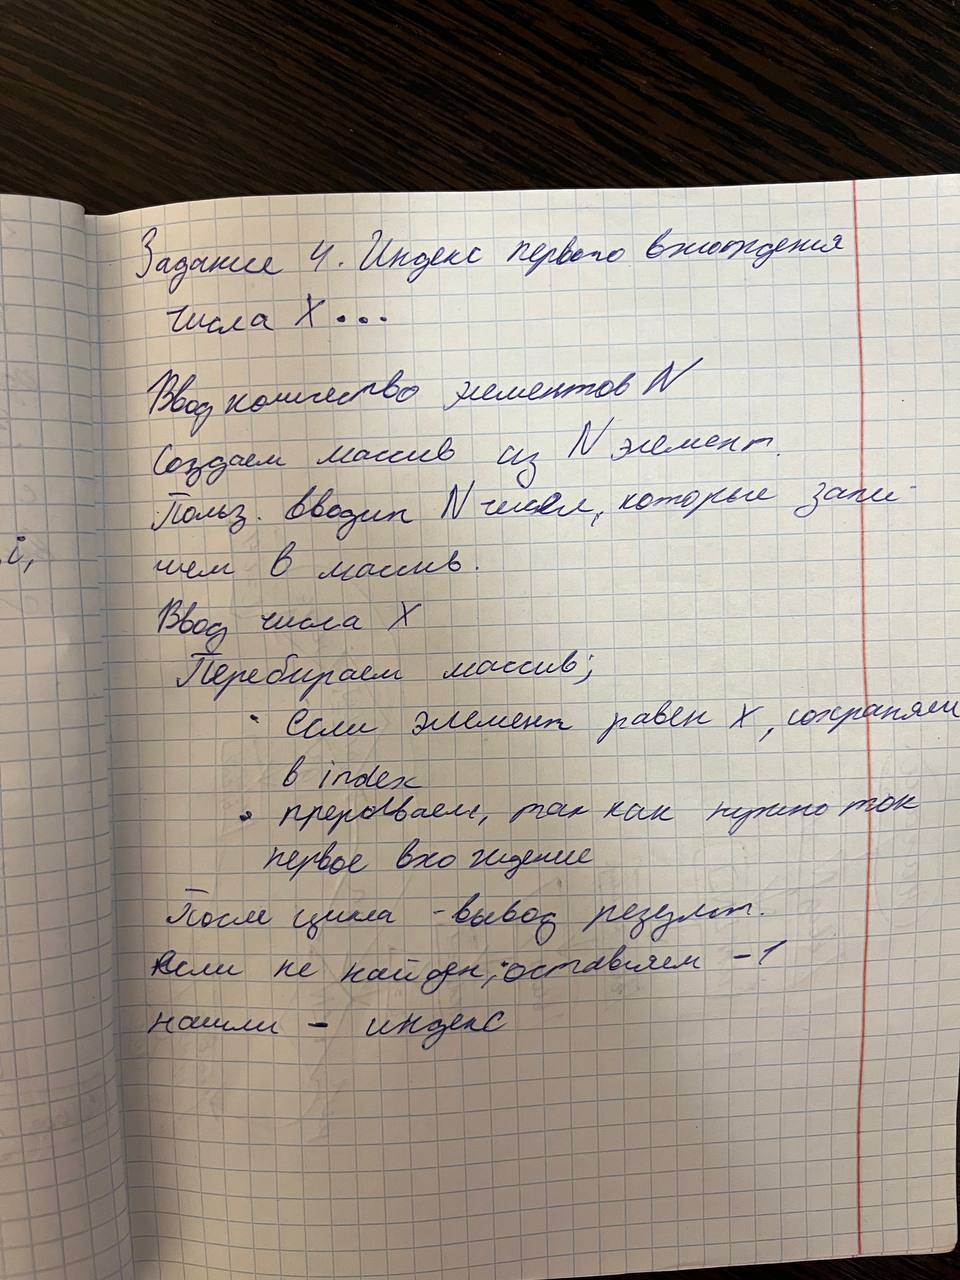 Задание 4. Индекс первого вхождения
числа X...
Ввод количество элементов N
Создаем массив из N элемент.
Польз. вводит N чисел, которые запи-
шем в массив.
i,
Ввод числа X
Перебираем массив;
• Если элемент равен X, сохраняем
в index
• прерываем, так как нужно ток
первое вхождение
После цикла - вывод результ.
Если не найден, оставляем -1
нашли - индекс